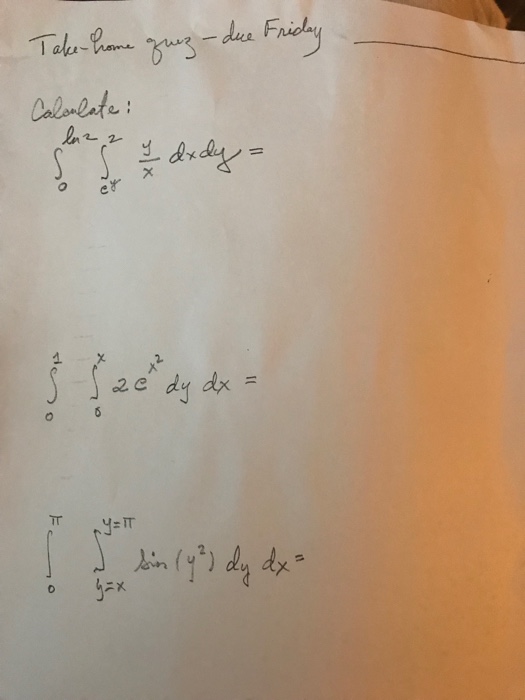 Take-home quiz - due Friday
Calculate:
∫₀^{ln 2} ∫_{e^y}^{2} y/x dx dy =
∫₀^{1} ∫₀^{x} 2e^{x²} dy dx =
∫₀^{π} ∫_{y=x}^{y=π} sin(y²) dy dx =